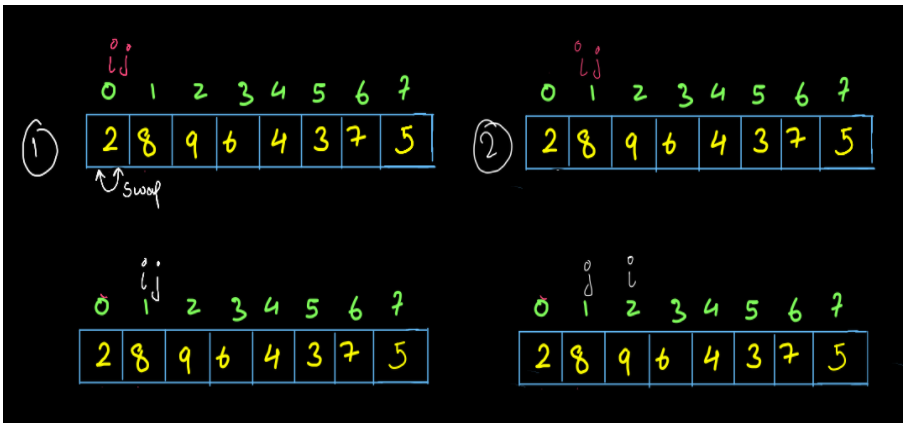 i j
0 1 2 3 4 5 6 7
1 2 8 9 6 4 3 7 5
swap
i j
0 1 2 3 4 5 6 7
2 2 8 9 6 4 3 7 5
i j
0 1 2 3 4 5 6 7
2 8 9 6 4 3 7 5
j i
0 1 2 3 4 5 6 7
2 8 9 6 4 3 7 5